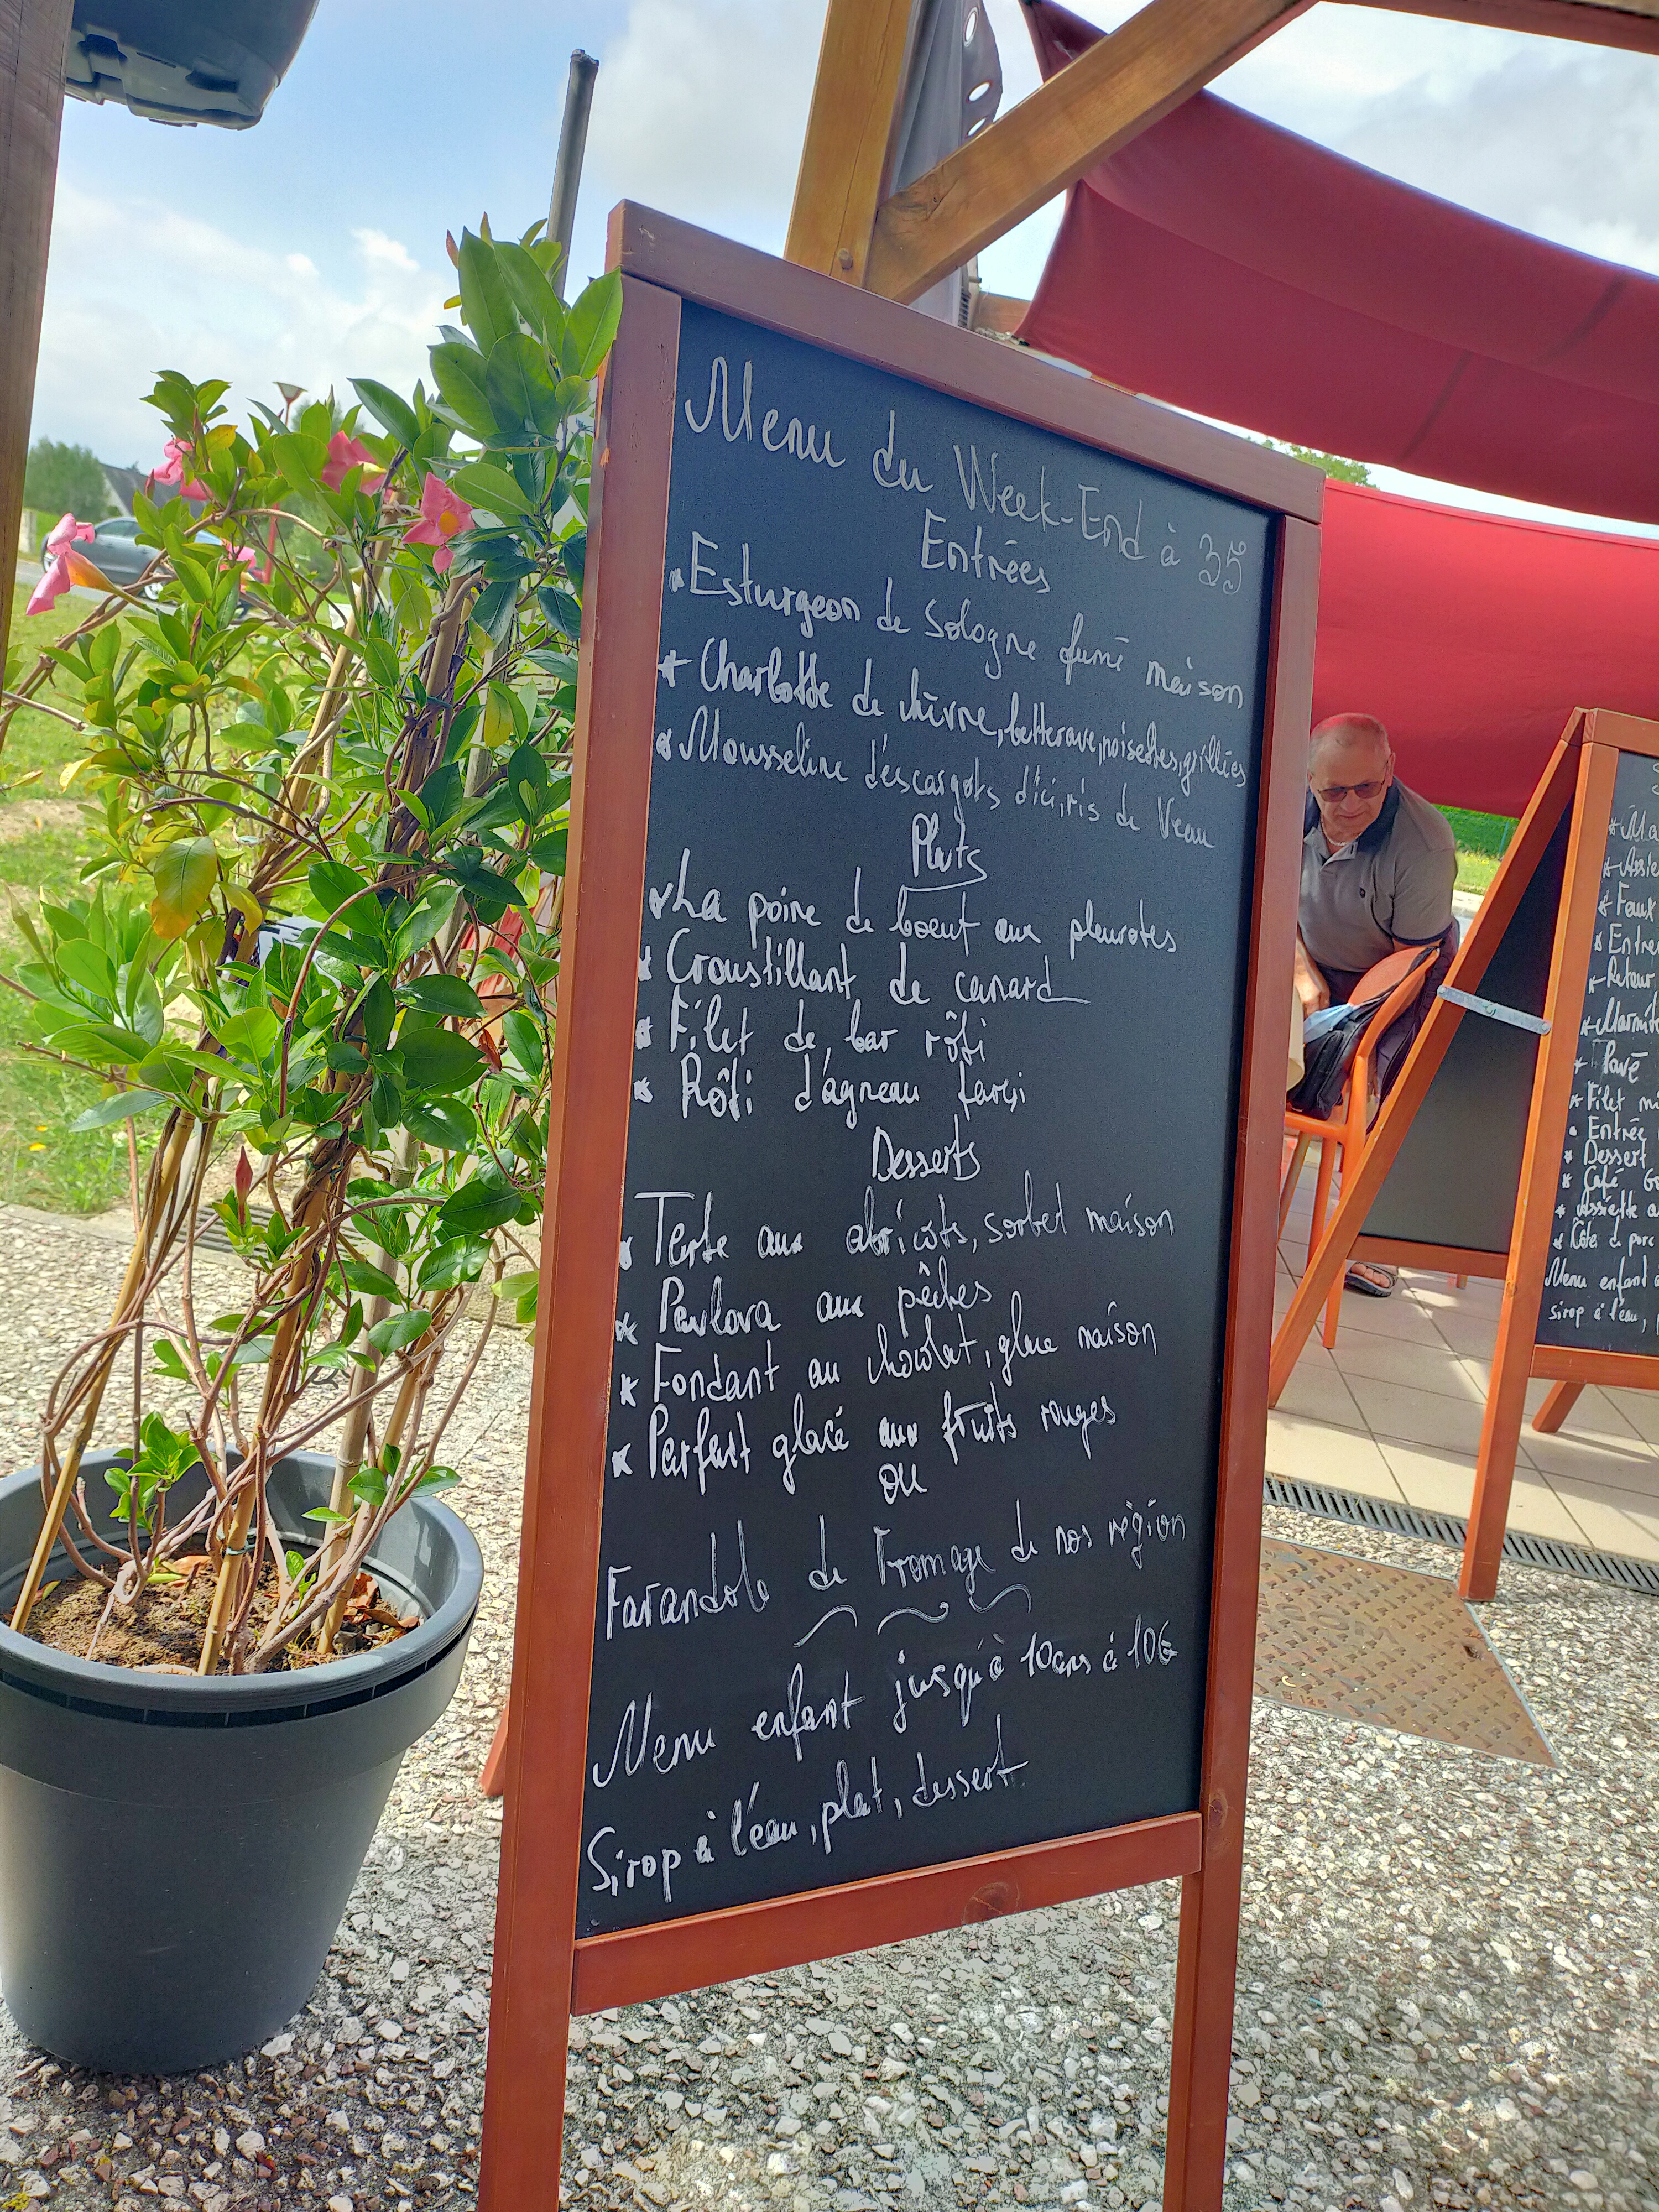 Menu du Week-End à 35
Entrées
Esturgeon de Sologne fumé maison
Charlotte de chèvre, betterave, noisettes, grillées
Mousseline d'escargots d'ici, ris de Veau
Plats
La poire de boeuf aux pleurotes
Croustillant de canard
Filet de bar rôti
Rôti d'agneau farçi
Desserts
Tarte aux abricots, sorbet maison
Pavlova aux pêches
Fondant au chocolat, glace maison
Parfait glacé aux fruits rouges
ou
Farandole de Fromage de nos région
Menu enfant jusqu'à 10ans à 10€
Sirop à l'eau, plat, dessert
Ma
Assie
Faux
Entre
Retour
Marmite
Pavé
Filet mi
Entrée
Dessert
Café Go
Assiette a
Côte de porc
Menu enfant
sirop à l'eau,